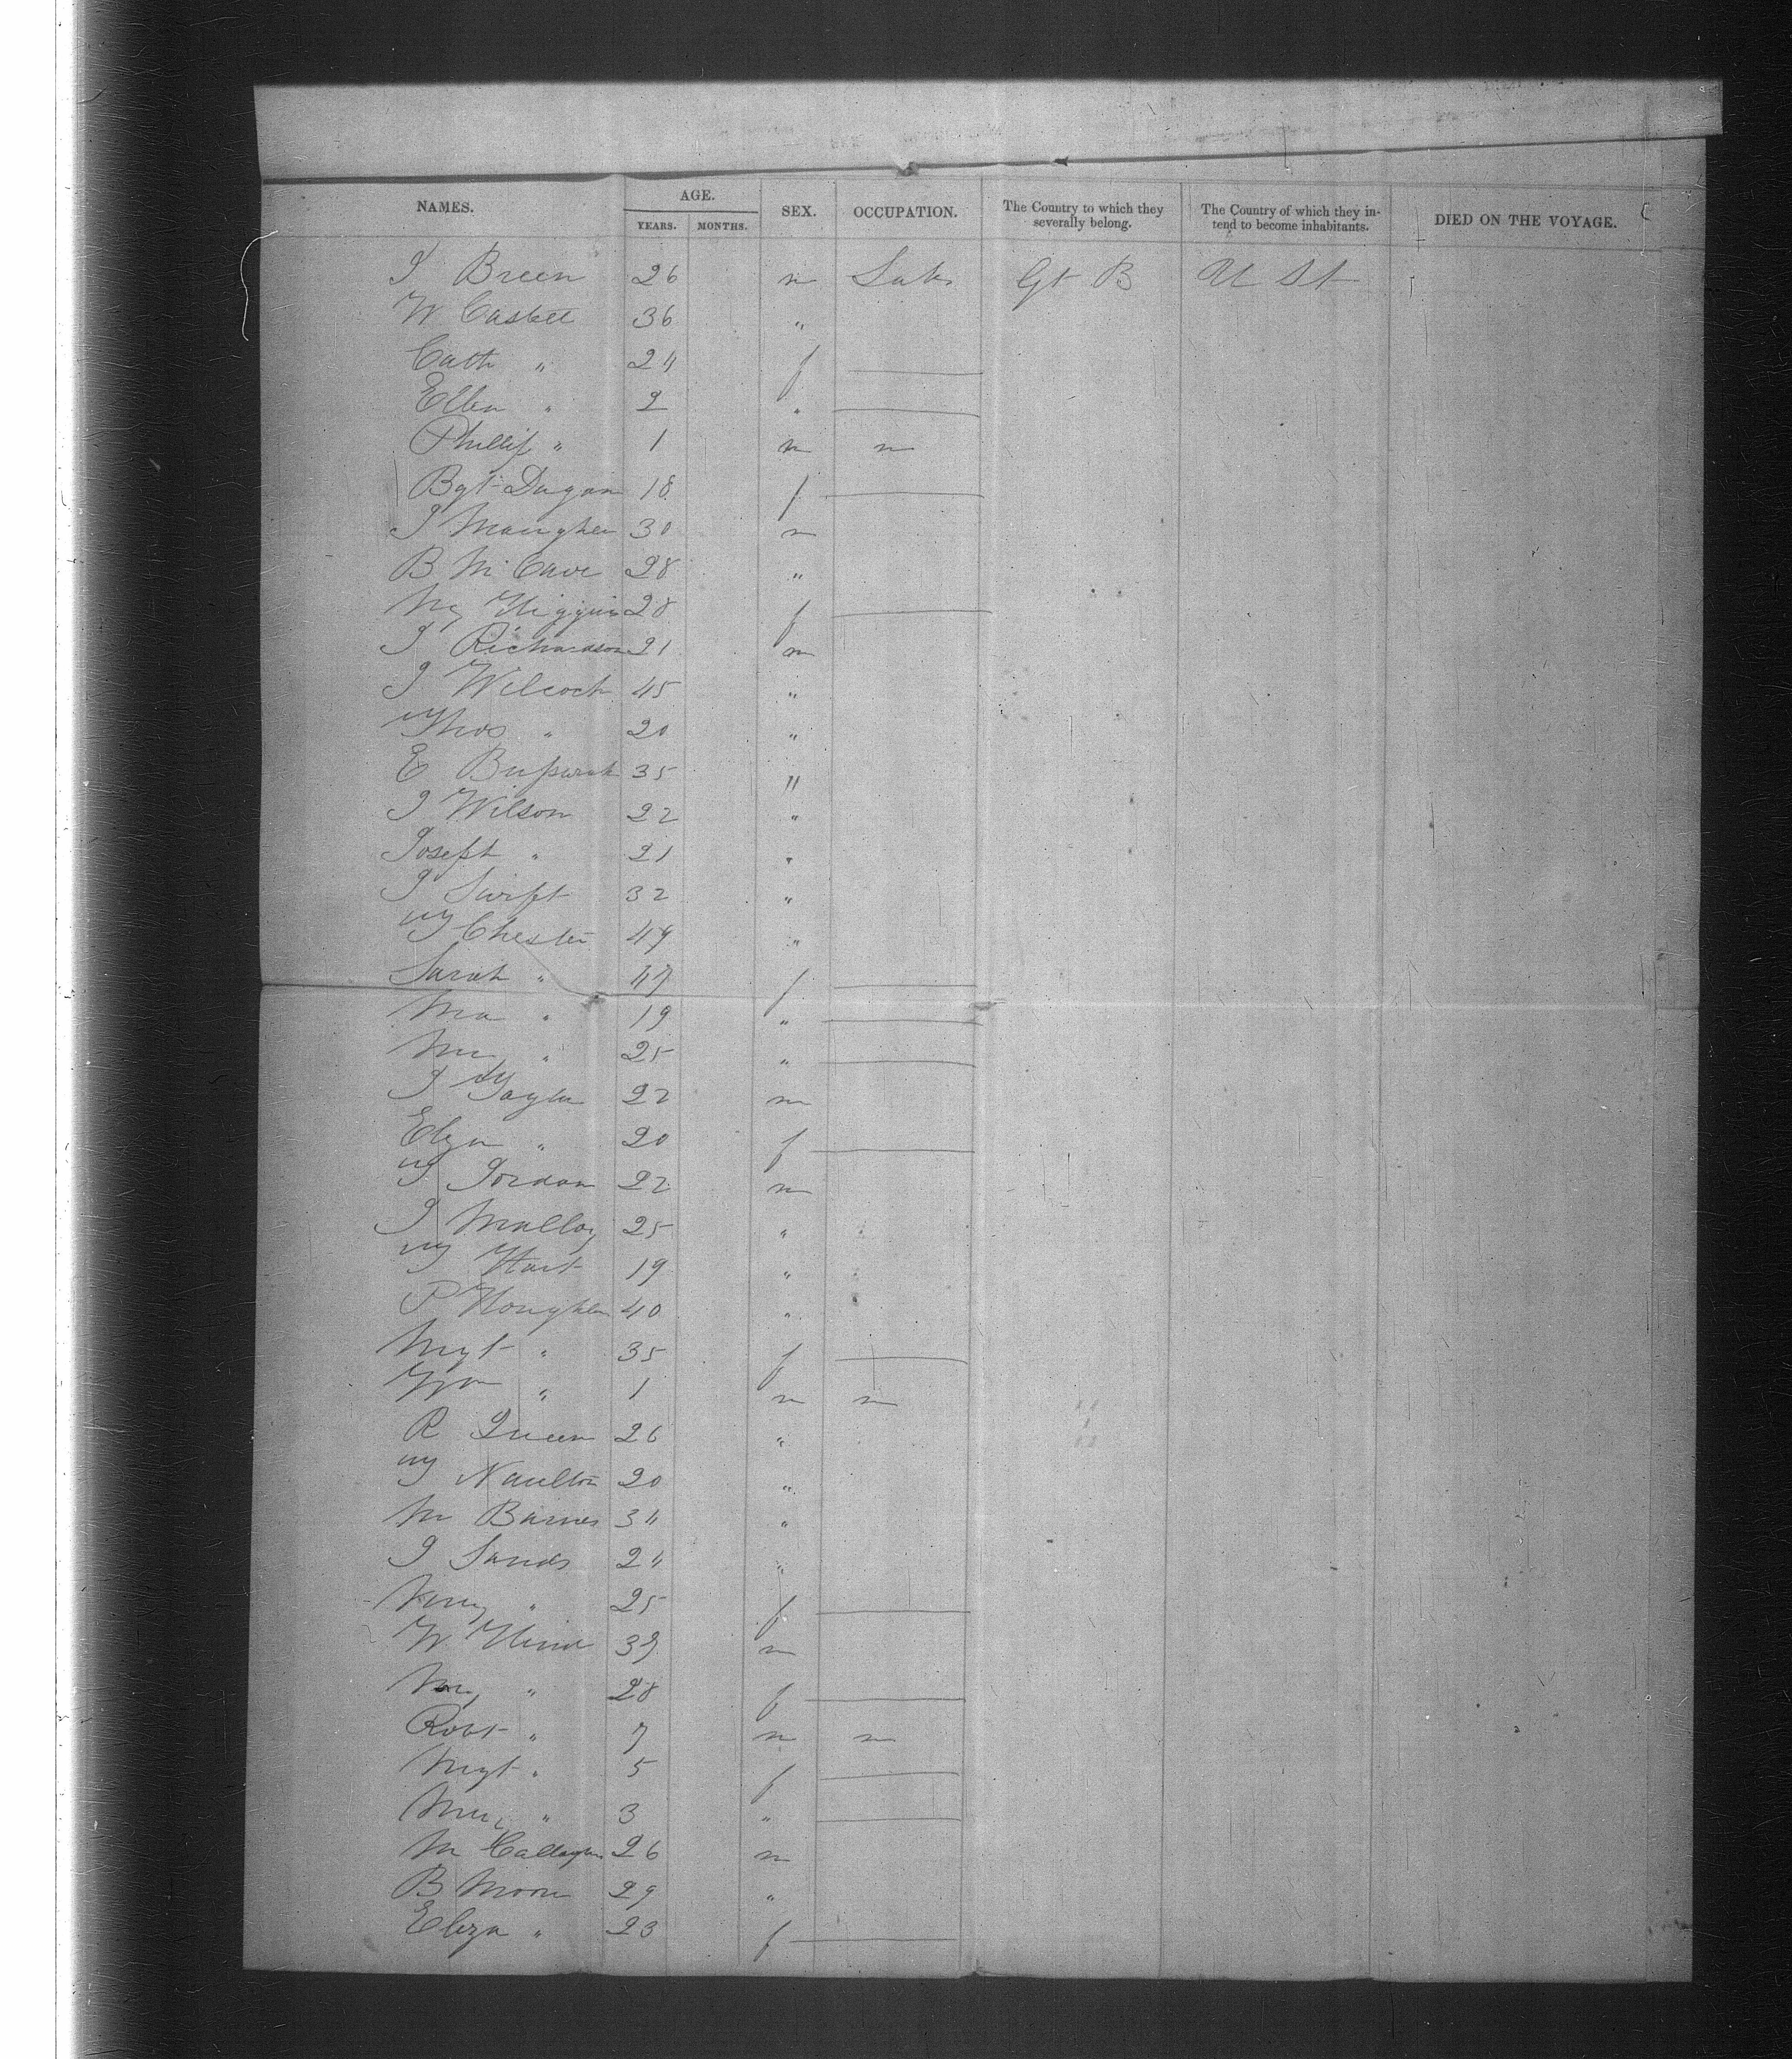 NAMES. AGE. SEX. OCCUPATION. The Country to which they severally belong. The Country of which they intend to become inhabitants. DIED ON THE VOYAGE.
YEARS. MONTHS.
J Breen 26 m Lab Gt B U St
W Casbell 36 "
Cath " 24 f
Ellen " 2 "
Phillip " 1 m m
Bgt Dugan 18 f
J Maughen 30 m
B McCave 28 "
My Higgins 28 f
J Richardson 21 m
J Wilcock 45 "
Thos " 20 "
E 35 "
J Wilson 22 "
Joseph " 21 "
J Swift 32 "
T Chester 49 "
Sarah " 47 f
Ma " 19 "
" 25 "
J Taylor 22 m
Elza " 20 f
T Jordan 22 m
J Mulloy 25 "
T Hart 19 "
P Houghen 40 "
Mgt " 35 f
Wm " 1 m m
R Queen 26 "
T Naulton 20 "
M Barnes 34 "
J Sands 24 "
Mary " 25 f
W Hind 39 m
My " 28 f
Robt " 7 m m
Mgt " 5 f
My " 3 "
M Callaghan 26 m
B Moon 29 "
Eliza " 23 f